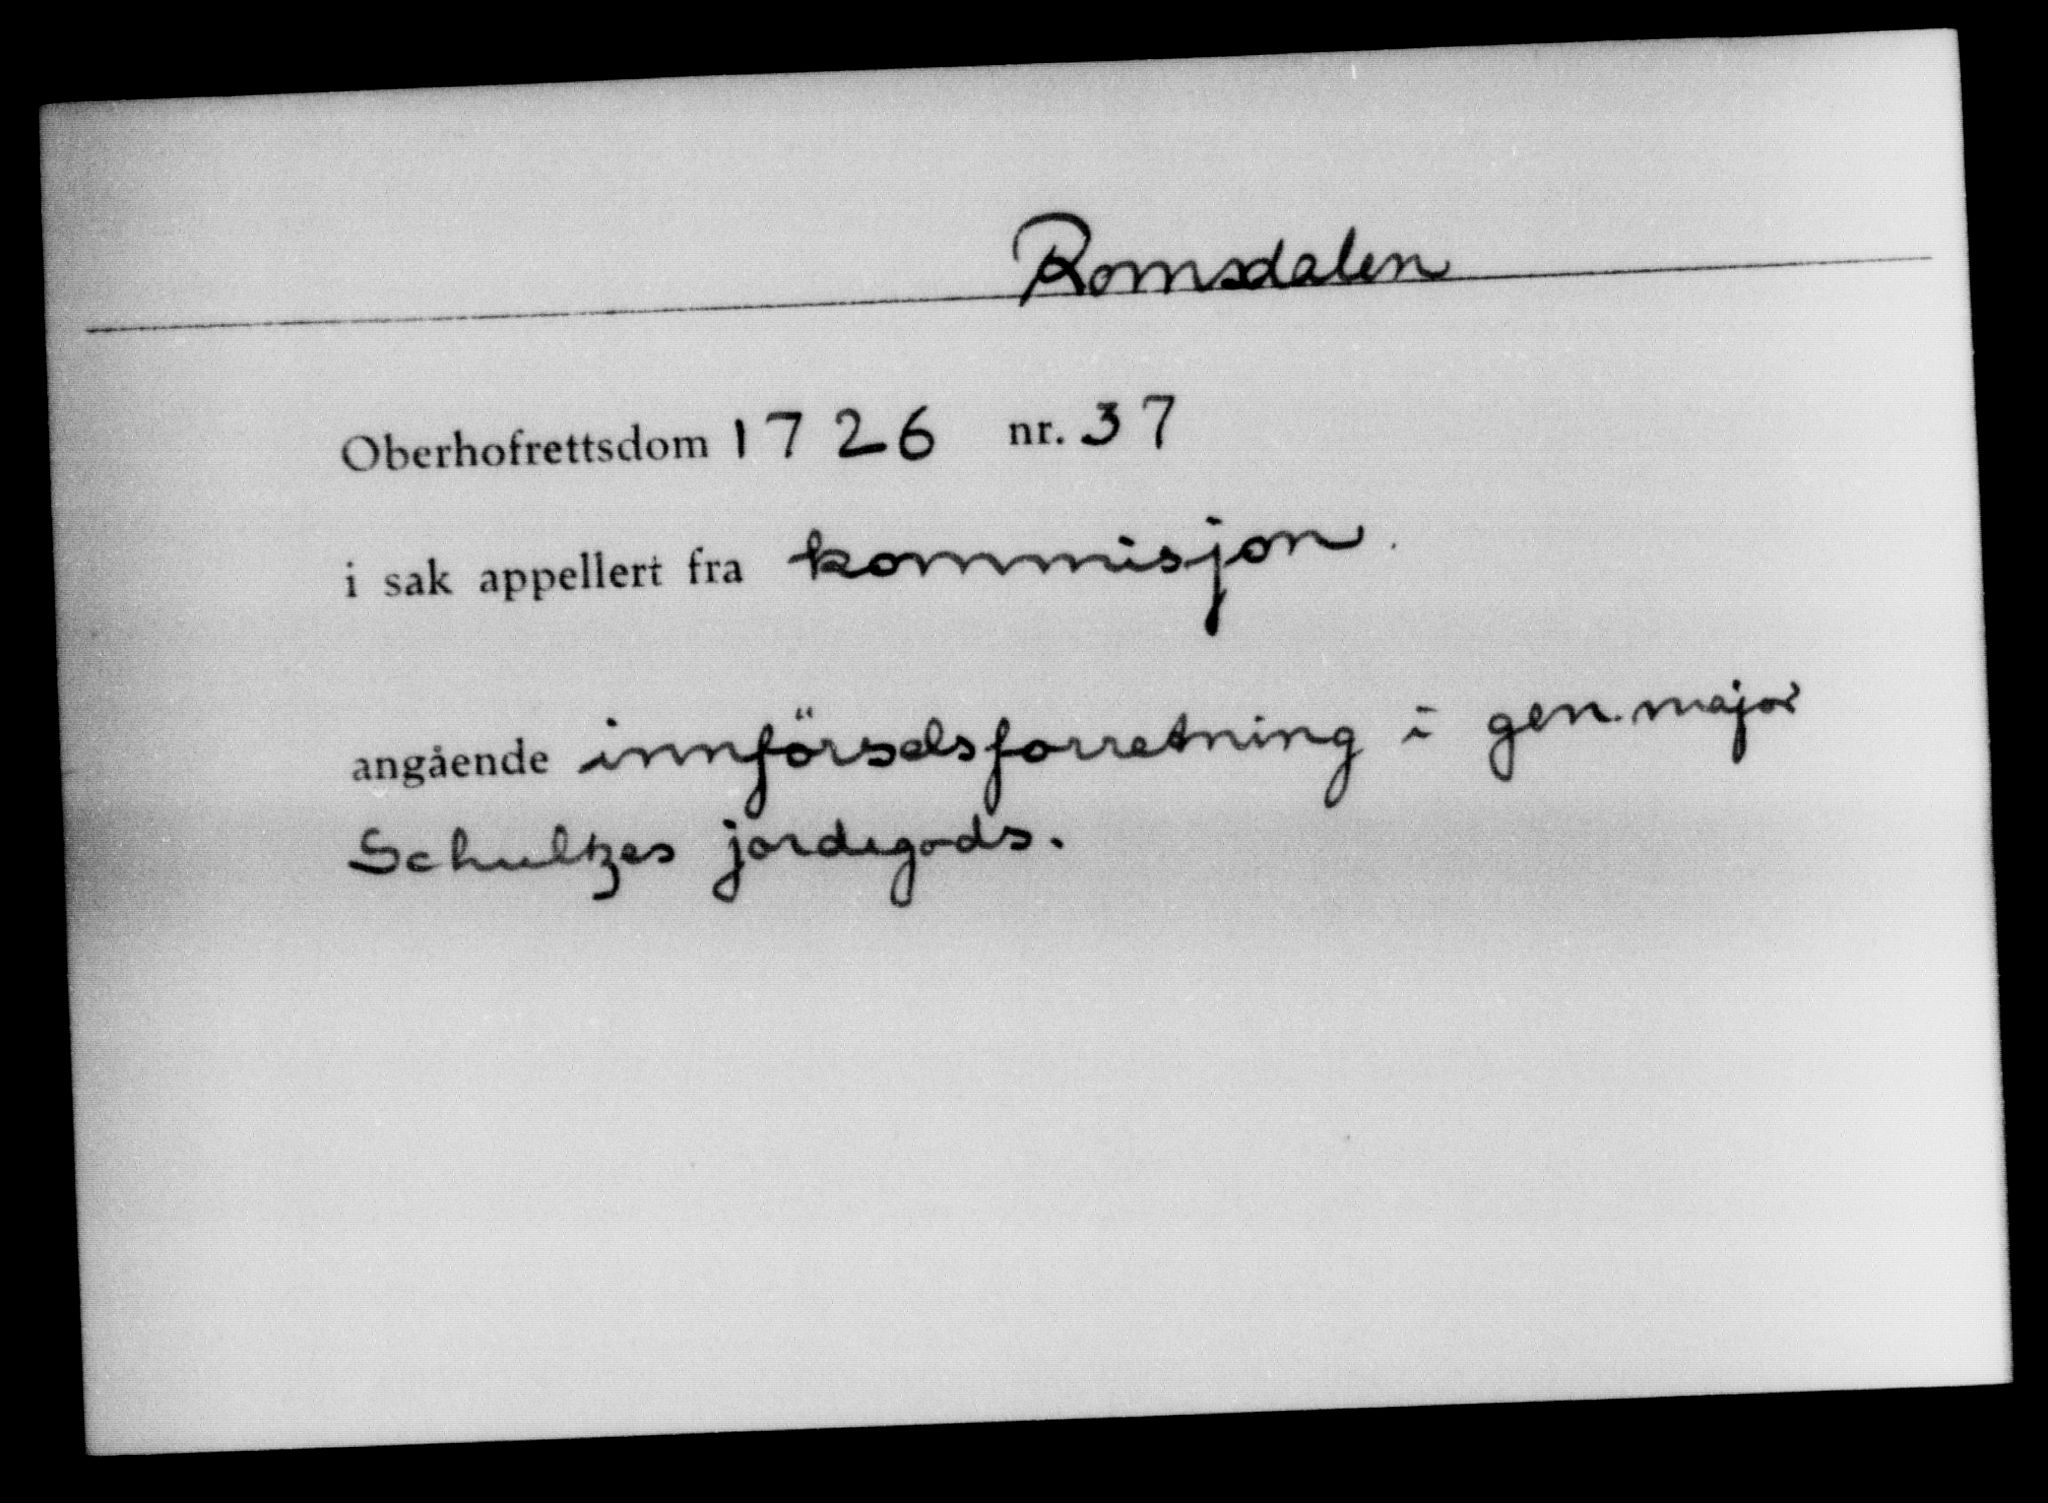 Romsdalen
Oberhofrettsdom 1726 nr. 37
i sak appellert fra kommisjon.
angående innförselsforretning i gen.major
Schultzes jordegods.